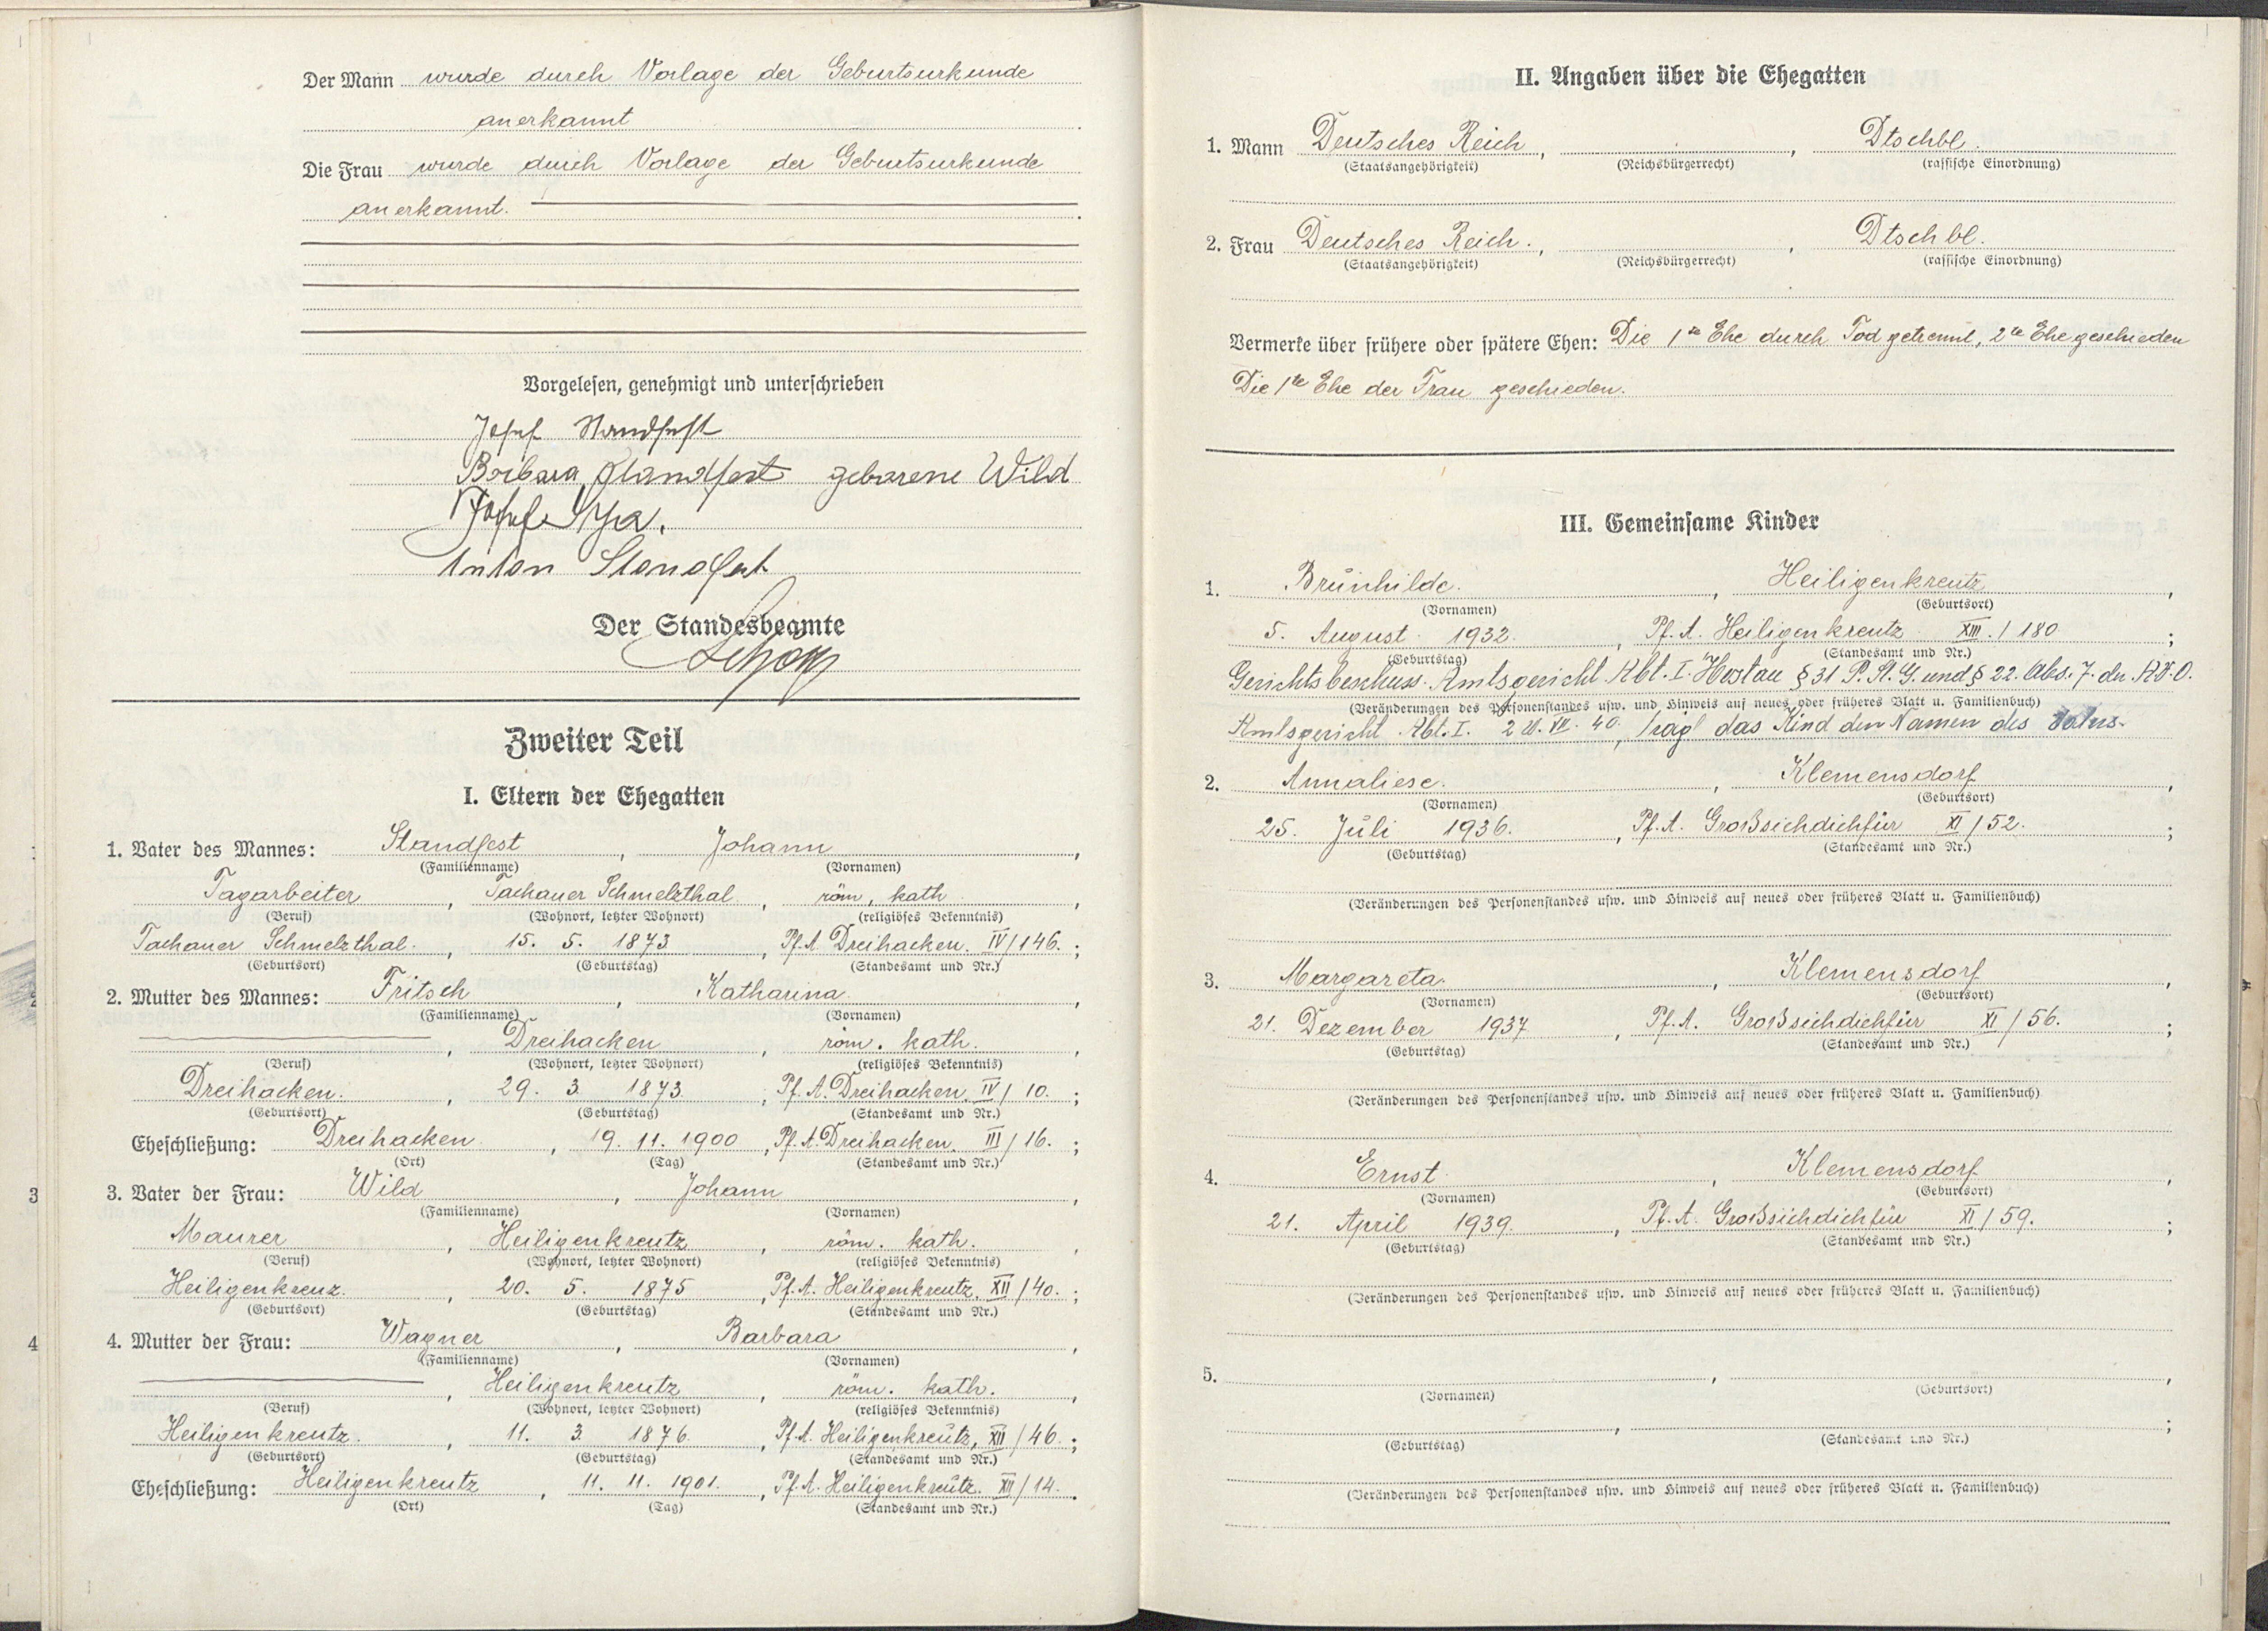 Der Mann wurde durch Vorlage der Geburtsurkunde
anerkannt
Die Frau wurde durch Vorlage der Geburtsurkunde
anerkannt.
Vorgelesen, genehmigt und unterschrieben
Josef Standfest
Barbara Standfest geborene Wild
Josef
Anton Standfest
Der Standesbeamte
Zweiter Teil
I. Eltern der Ehegatten
1. Vater des Mannes: Standfest, Johann,
(Familienname) (Vornamen)
Tagarbeiter, Tachauer Schmelzthal, röm. kath,
(Beruf) (Wohnort, letzter Wohnort) (religiöses Bekenntnis)
Tachauer Schmelzthal., 15. 5. 1873, Pf. A Dreihacken. IV/146.;
(Geburtsort) (Geburtstag) (Standesamt und Nr.)
2. Mutter des Mannes: Fritsch, Katharina,
(Familienname) (Vornamen)
, Dreihacken, röm. kath.,
(Beruf) (Wohnort, letzter Wohnort) (religiöses Bekenntnis)
Dreihacken., 29. 3. 1873., Pf. A. Dreihacken IV/10.;
(Geburtsort) (Geburtstag) (Standesamt und Nr.)
Eheschließung: Dreihacken, 19. 11. 1900, Pf. A. Dreihacken. III/16.;
(Ort) (Tag) (Standesamt und Nr.)
3. Vater der Frau: Wild, Johann,
(Familienname) (Vornamen)
Maurer, Heiligenkreutz, röm. kath.,
(Beruf) (Wohnort, letzter Wohnort) (religiöses Bekenntnis)
Heiligenkreuz., 20. 5. 1875, Pf. A. Heiligenkreutz. XII/40.;
(Geburtsort) (Geburtstag) (Standesamt und Nr.)
4. Mutter der Frau: Wagner, Barbara,
(Familienname) (Vornamen)
, Heiligenkreutz, röm. kath.,
(Beruf) (Wohnort, letzter Wohnort) (religiöses Bekenntnis)
Heiligenkreutz., 11. 3. 1876., Pf. A. Heiligenkreutz, XII/46.;
(Geburtsort) (Geburtstag) (Standesamt und Nr.)
Eheschließung: Heiligenkreutz, 11. 11. 1901., Pf. A. Heiligenkreutz. XII/14.
(Ort) (Tag) (Standesamt und Nr.)
3
4
II. Angaben über die Ehegatten
1. Mann Deutsches Reich, , Dtschbl.
(Staatsangehörigkeit) (Reichsbürgerrecht) (rassische Einordnung)
2. Frau Deutsches Reich., , Dtschbl.
(Staatsangehörigkeit) (Reichsbürgerrecht) (rassische Einordnung)
Vermerke über frühere oder spätere Ehen: Die 1te Ehe durch Tod getrennt, 2te Ehe geschieden
Die 1te Ehe der Frau geschieden.
III. Gemeinsame Kinder
1. Brünhilde., Heiligenkreutz,
(Vornamen) (Geburtsort)
5. August 1932., Pf. A. Heiligenkreutz XIII./180.;
(Geburtstag) (Standesamt und Nr.)
Gerichtsbeschuss. Amtsgericht Abt. I. Hostau § 31 P. St. G. und § 22. Abs. 7. der
(Veränderungen des Personenstandes usw. und Hinweis auf neues oder früheres Blatt u. Familienbuch)
Amtsgericht Abt. I. XII. 40. trägt das Kind den Namen des
2. Annaliese., Klemensdorf,
(Vornamen) (Geburtsort)
25. Jüli 1936., Pf. A. Großsichdichfür XI/52.;
(Geburtstag) (Standesamt und Nr.)
(Veränderungen des Personenstandes usw. und Hinweis auf neues oder früheres Blatt u. Familienbuch)
3. Margareta., Klemensdorf,
(Vornamen) (Geburtsort)
21. Dezember 1937, Pf. A. Großsichdichfür XI/56.;
(Geburtstag) (Standesamt und Nr.)
(Veränderungen des Personenstandes usw. und Hinweis auf neues oder früheres Blatt u. Familienbuch)
4. Ernst, Klemensdorf,
(Vornamen) (Geburtsort)
21. April 1939., Pf. A. Großsichdichfür XI/59.;
(Geburtstag) (Standesamt und Nr.)
(Veränderungen des Personenstandes usw. und Hinweis auf neues oder früheres Blatt u. Familienbuch)
5. , ,
(Vornamen) (Geburtsort)
, ;
(Geburtstag) (Standesamt und Nr.)
(Veränderungen des Personenstandes usw. und Hinweis auf neues oder früheres Blatt u. Familienbuch)